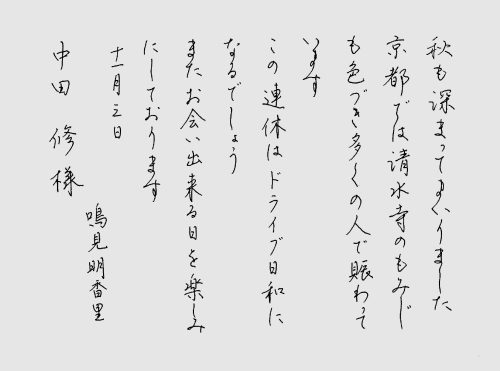 秋も深まってまいりました
京都では清水寺のもみじ
も色づき多くの人で賑わって
います
この連休はドライブ日和に
なるでしょう
またお会い出来る日を楽しみ
にしております
十一月三日
鳴見明香里
中田修様